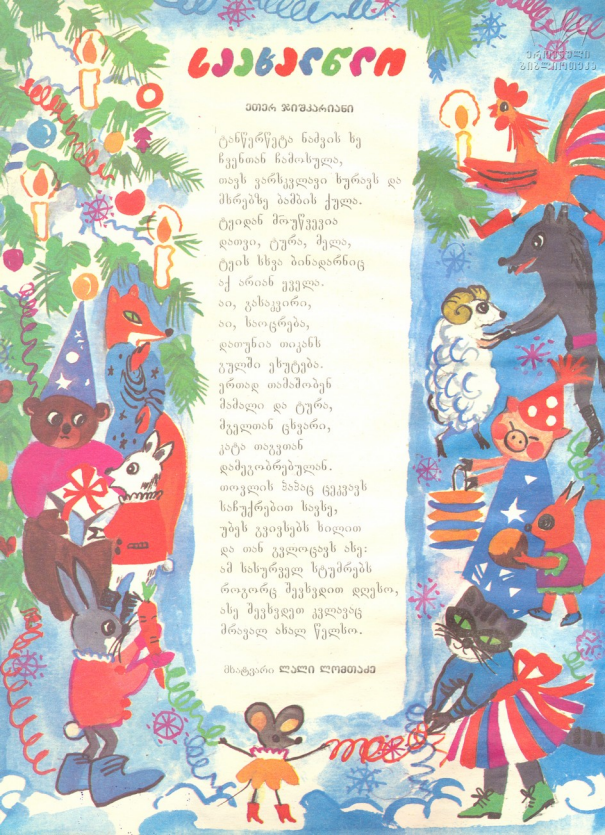 ეროვნული
ბიბლიოთეკა
საახალწლო
ეთერ ჯიშკარიანი
ტანწერწეტა ნაძვის ხე
ჩვენთან ჩამოსულა,
თავს ვარსკვლავი ხურავს და
მხრებზე ბამბის ქულა.
ტყიდან მოუწვევია
დათვი, ტურა, მელა,
ტყის სხვა ბინადარნიც
აქ არიან ყველა.
აი, გასაკვირი,
აი, საოცრება,
დათუნია თიკანს
გულში ეხუტება.
ერთად თამაშობენ
მამალი და ტურა,
მგელთან ცხვარი,
კატა თაგვთან
დამეგობრებულან.
თოვლის პაპაც ცეკვავს
საჩუქრებით სავსე,
უბეს გვივსებს ხილით
და თან გვლოცავს ასე:
ამ სასურველ სტუმრებს
როგორც შევხვდით დღესო,
ასე შევხვდეთ კვლავაც
მრავალ ახალ წელსო.
მხატვარი ლალი ლომთაძე